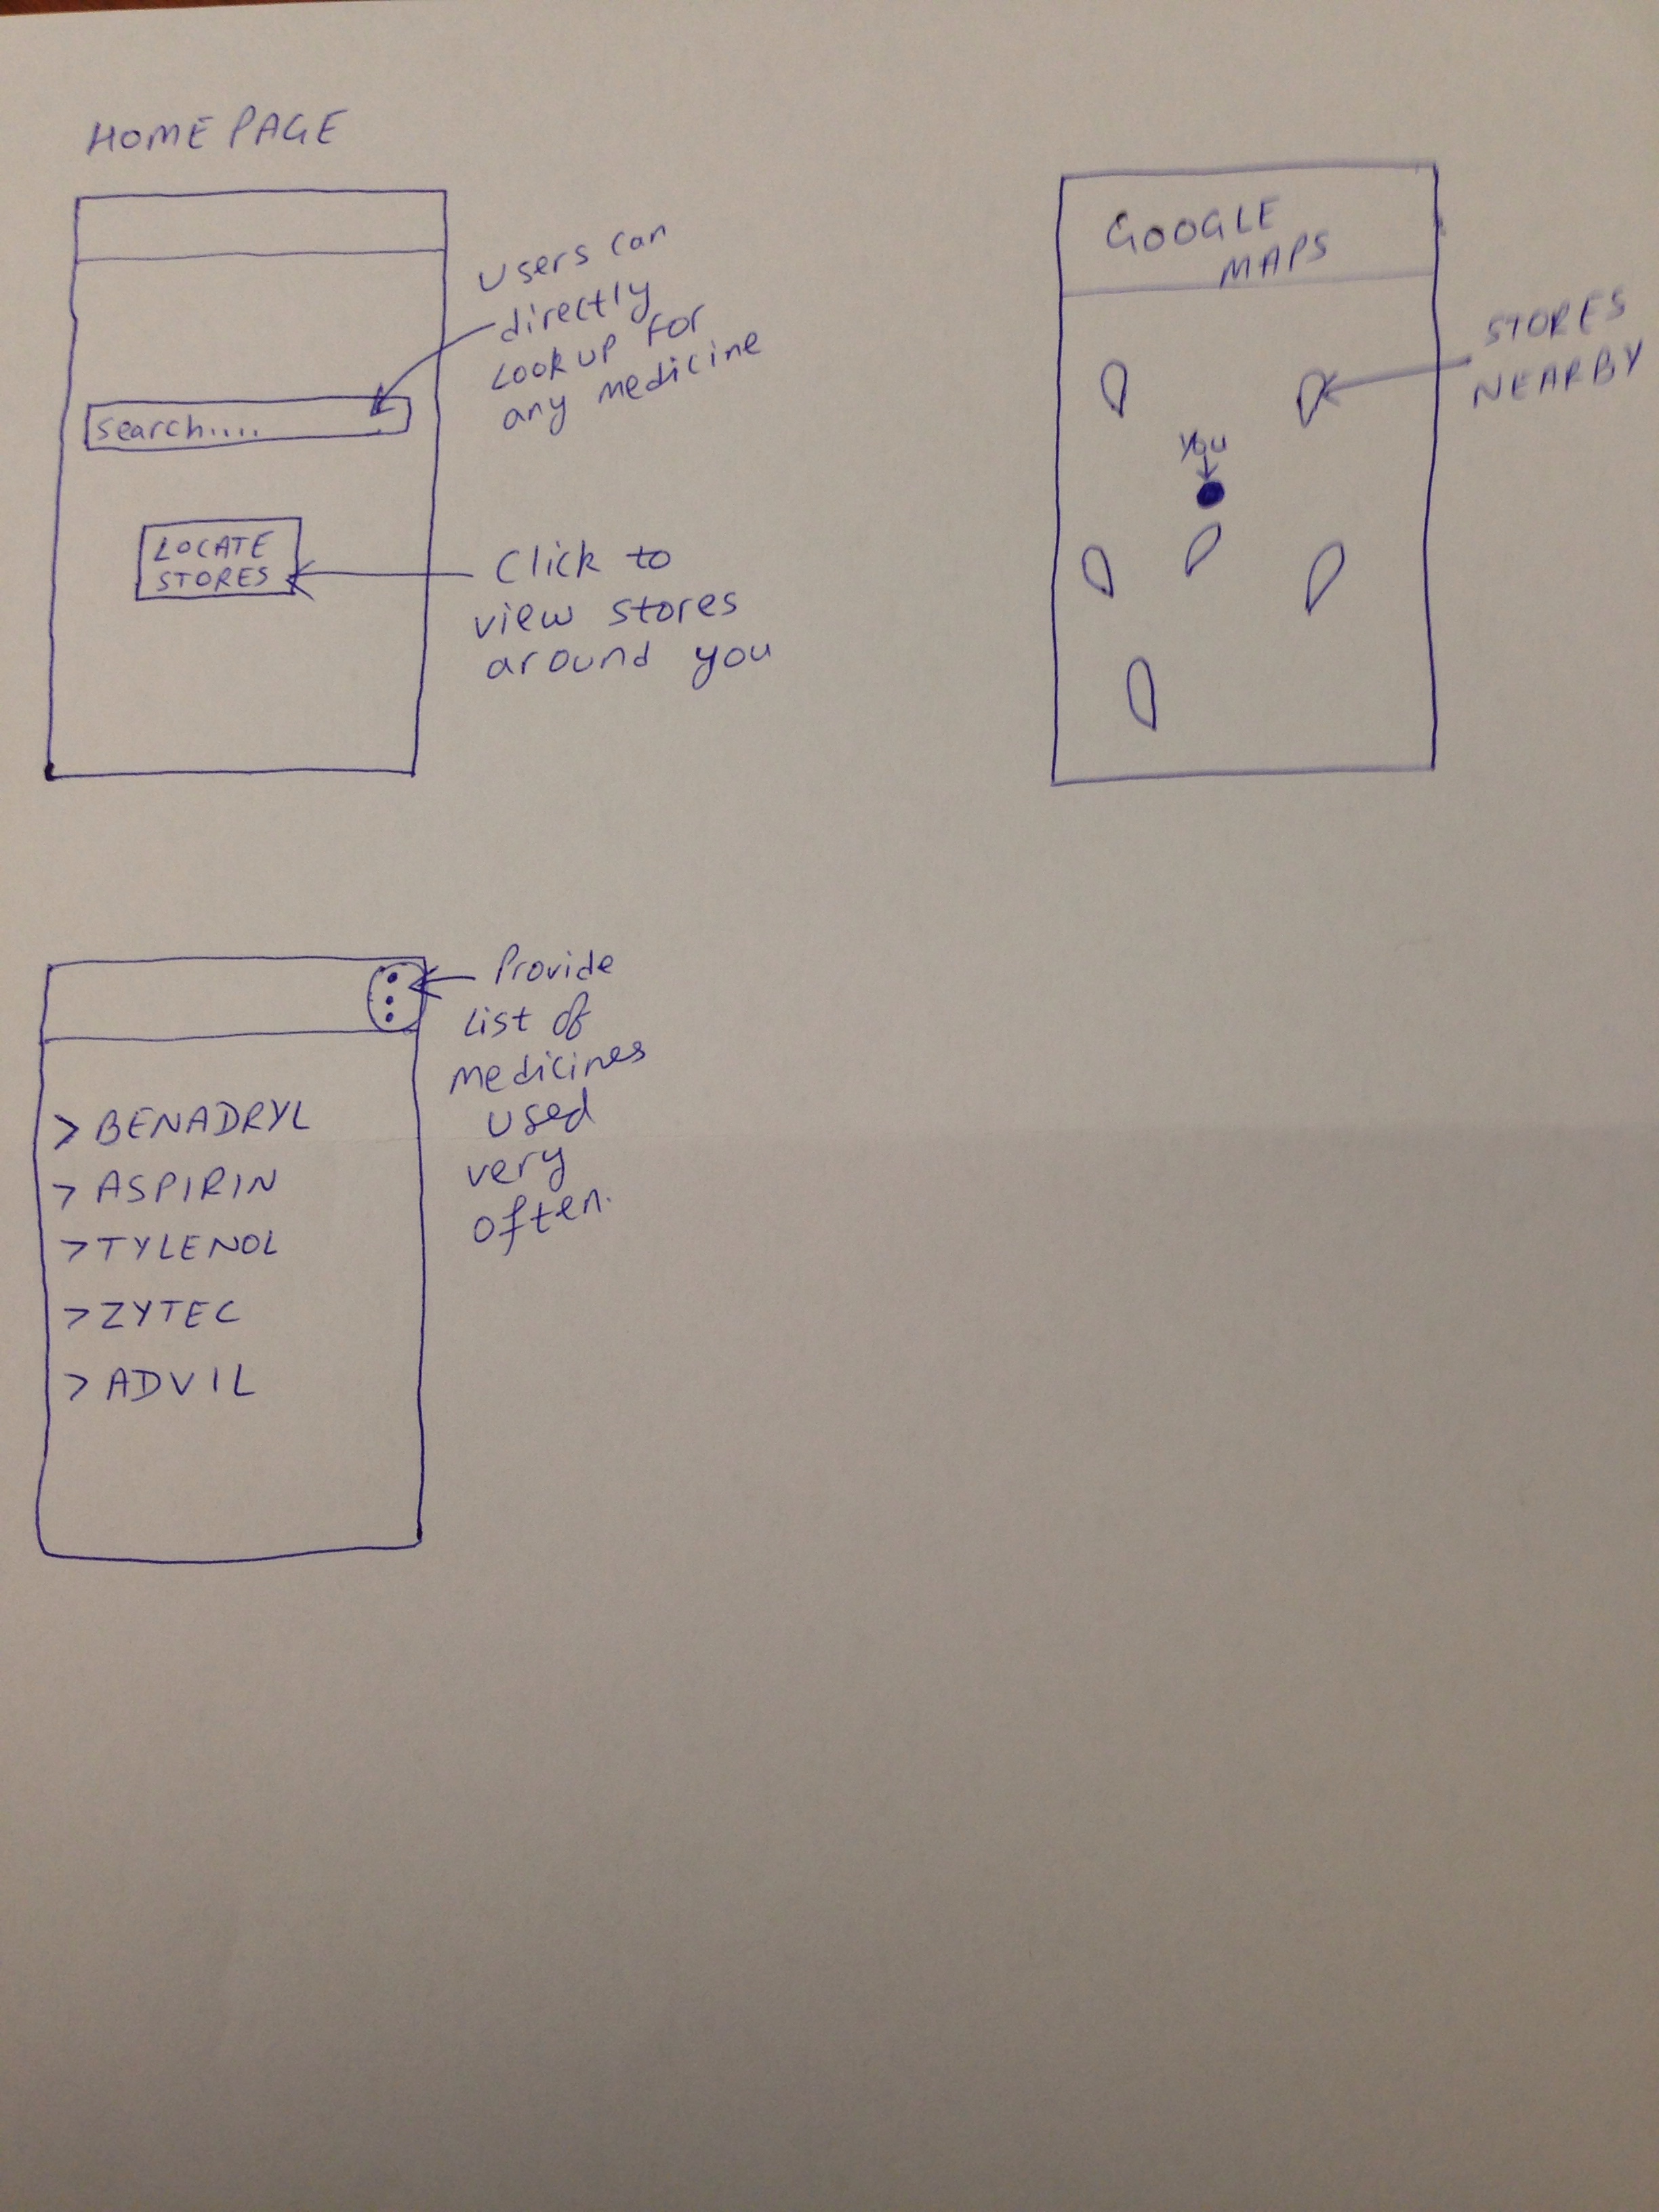 HOME PAGE
Users can
directly
Look up for
any medicine
Search....
LOCATE
STORES
Click to
view stores
around you
GOOGLE
MAPS
STORES
NEARBY
You
Provide
List of
medicines
used
very
often.
> BENADRYL
> ASPIRIN
> TYLENOL
> ZYTEC
> ADVIL